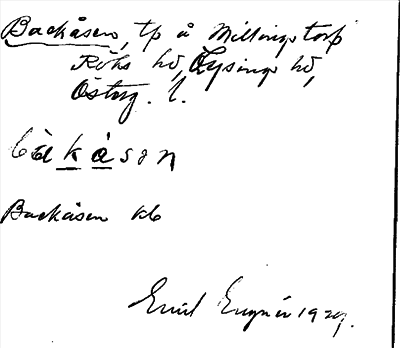 Backåsen, tp å Millingstorp
Röks hd, Lysings hd,
Östug. l.
bàkàsen
Backåsen kb
Emil Engnér 1929.